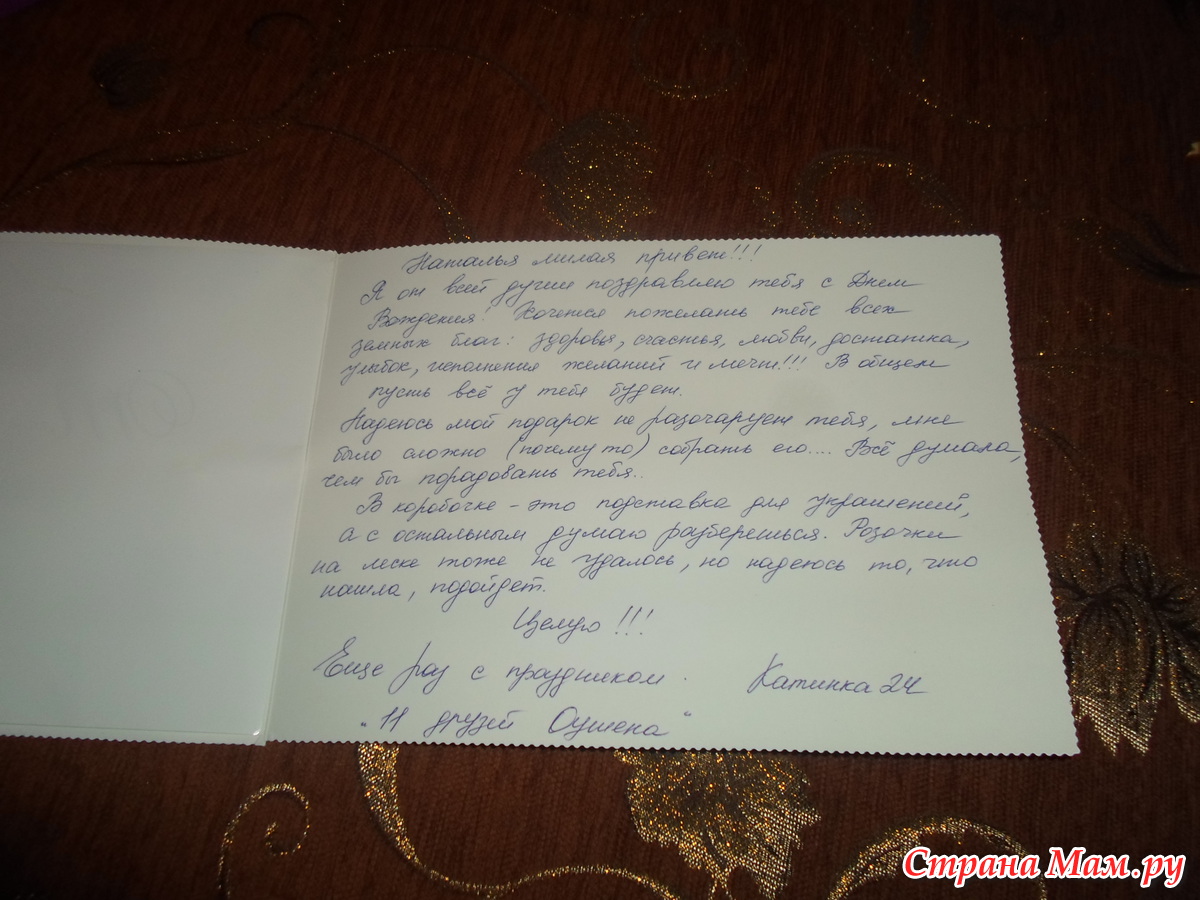 Наталья милая привет!!!
Я от всей души поздравляю тебя с Днем
Рождения! Хочется пожелать тебе всех
земных благ: здоровья, счастья, любви, достатка,
улыбок, исполнения желаний и мечт!!! В общем
пусть всё у тебя будет.
Надеюсь мой подарок не разочарует тебя, мне
было сложно (почему то) собрать его.... Всё думала,
чем бы порадовать тебя..
В коробочке - это подставка для украшений,
а с остальным думаю разберешься. Розочки
на леске тоже не удалось, но надеюсь то, что
нашла, подойдет.
Целую!!!
Еще раз с праздником. Катинка 24
"11 друзей Оушена"
Страна Мам.ру